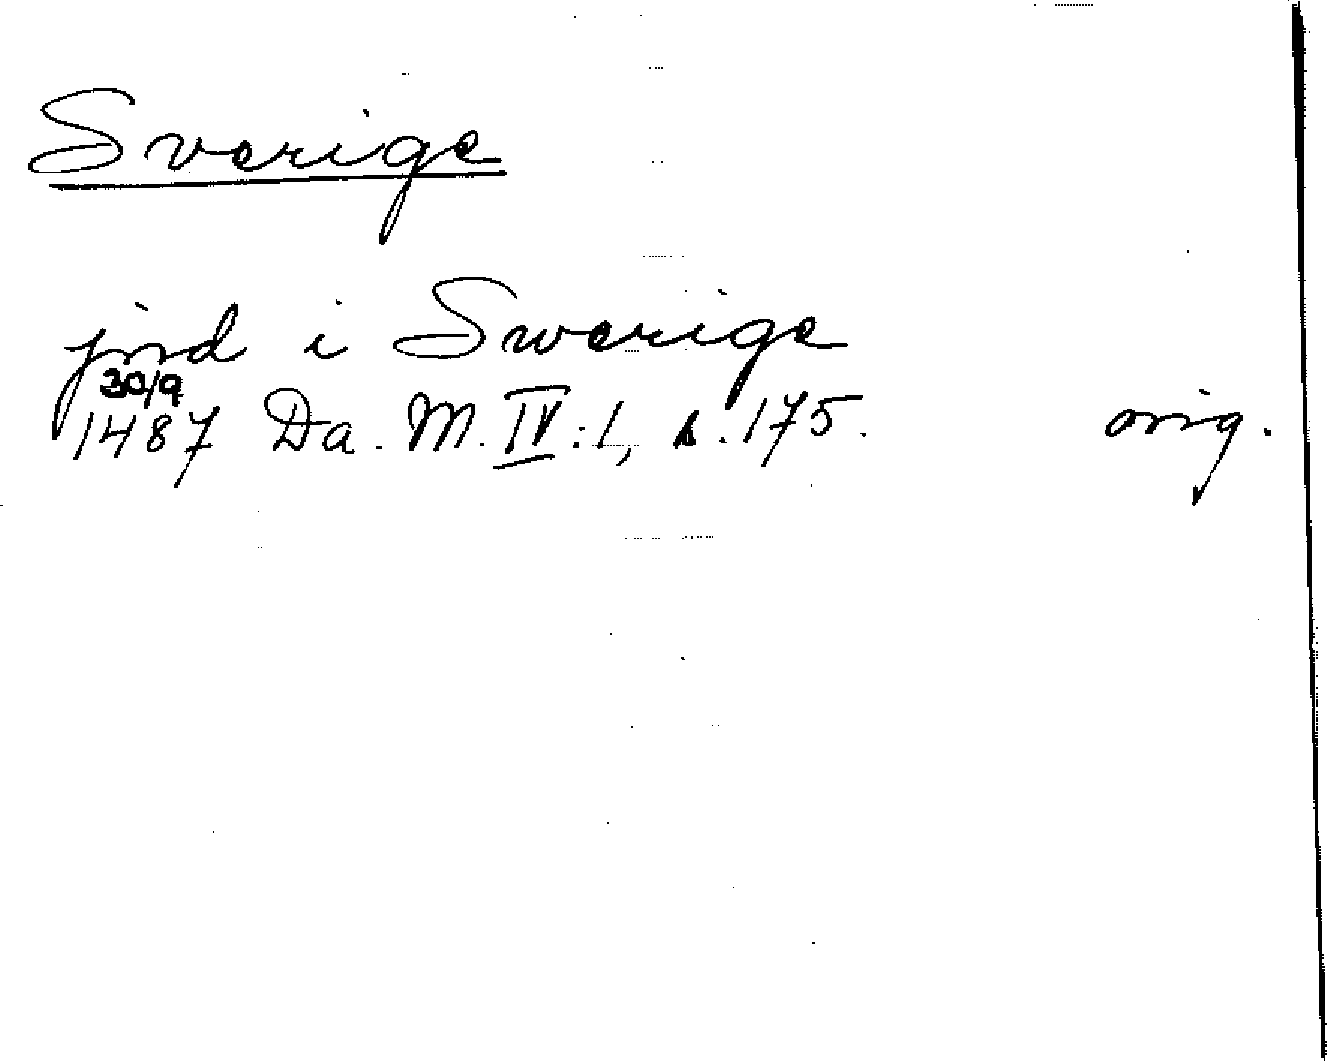 Sverige
jord i Swerige
30/9
1487 Da. M. IV:1, s. 175. orig.